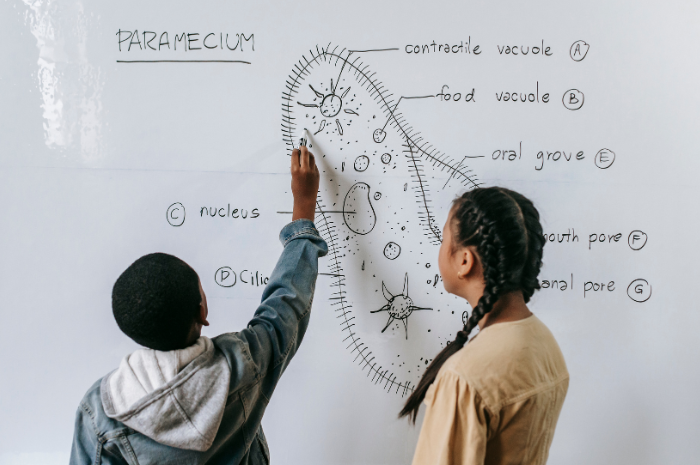 PARAMECIUM
contractile vacuole A
food vacuole B
oral grove E
C nucleus
outh pore F
D Cilic
anal pore G